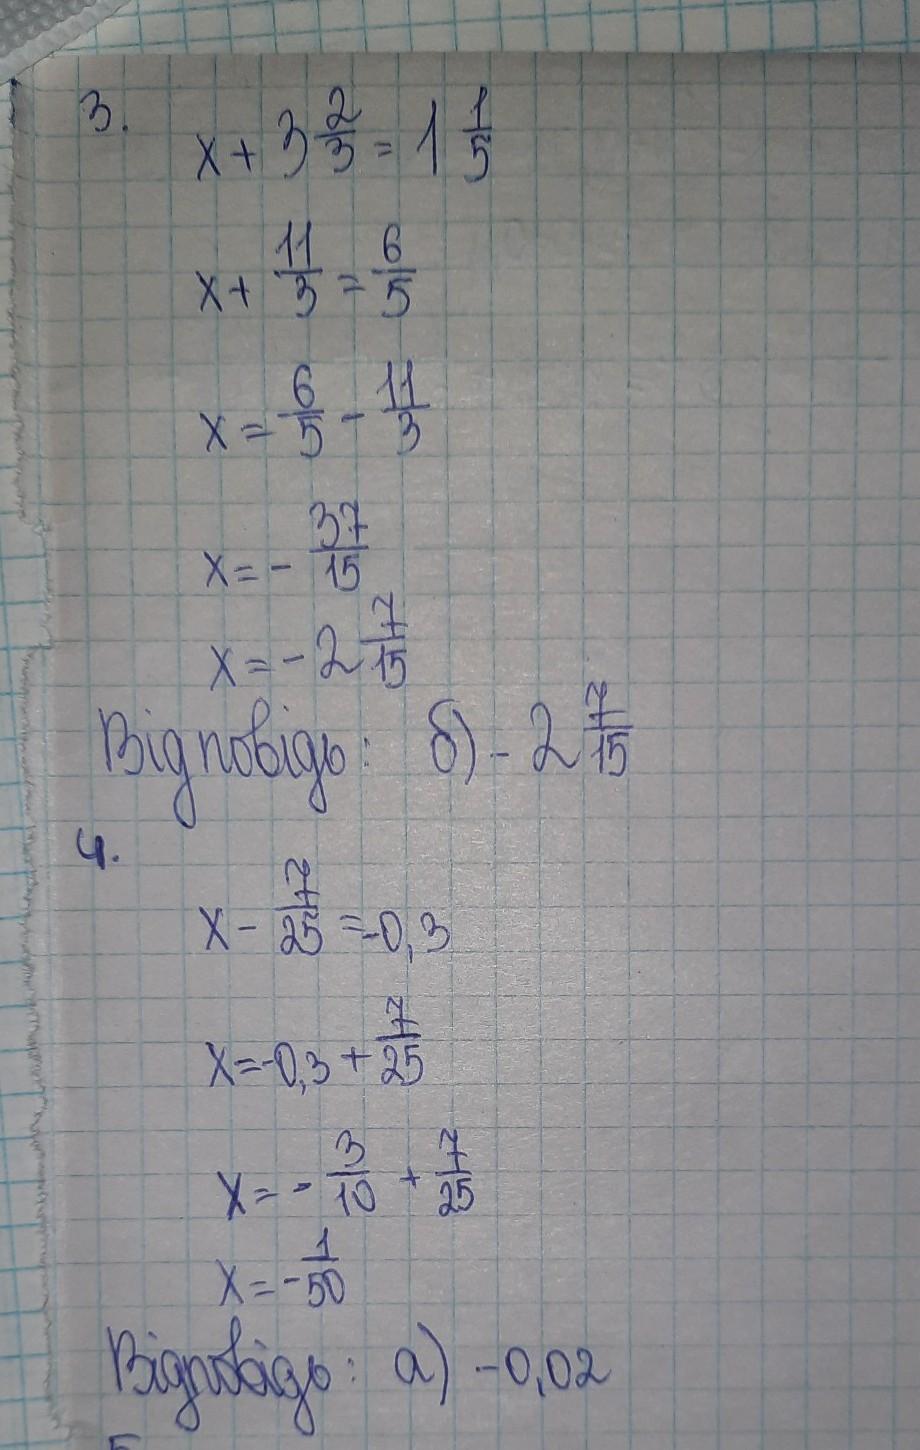 3.
x + 3 2/3 = 1 1/5
x + 11/3 = 6/5
x = 6/5 - 11/3
x = - 37/15
x = - 2 7/15
Відповідь: б) - 2 7/15
4.
x - 7/25 = -0,3
x = -0,3 + 7/25
x = - 3/10 + 7/25
x = - 1/50
Відповідь: а) -0,02